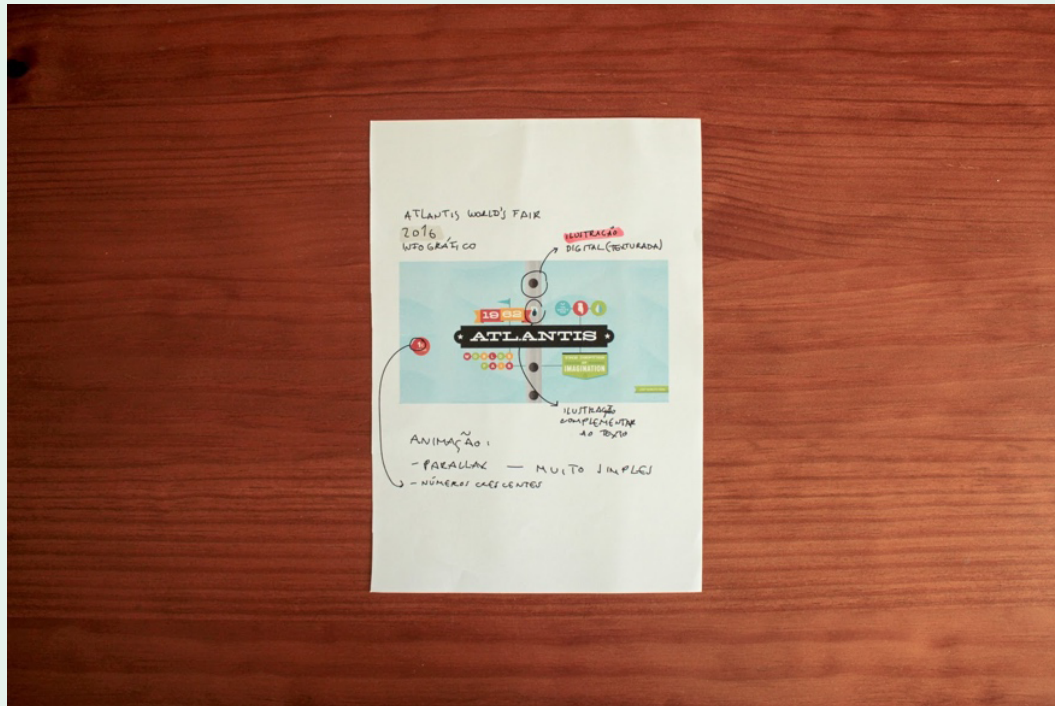 ATLANTIS WORLD'S FAIR
2016
INFOGRÁFICO
ILUSTRAÇÃO
DIGITAL (TEXTURADA)
1962
ATLANTIS
WORLDS
FAIR
IMAGINATION
ILUSTRAÇÃO
COMPLEMENTAR
AO TEXTO
ANIMAÇÃO:
- PARALLAX — MUITO SIMPLES
- NÚMEROS CRESCENTES